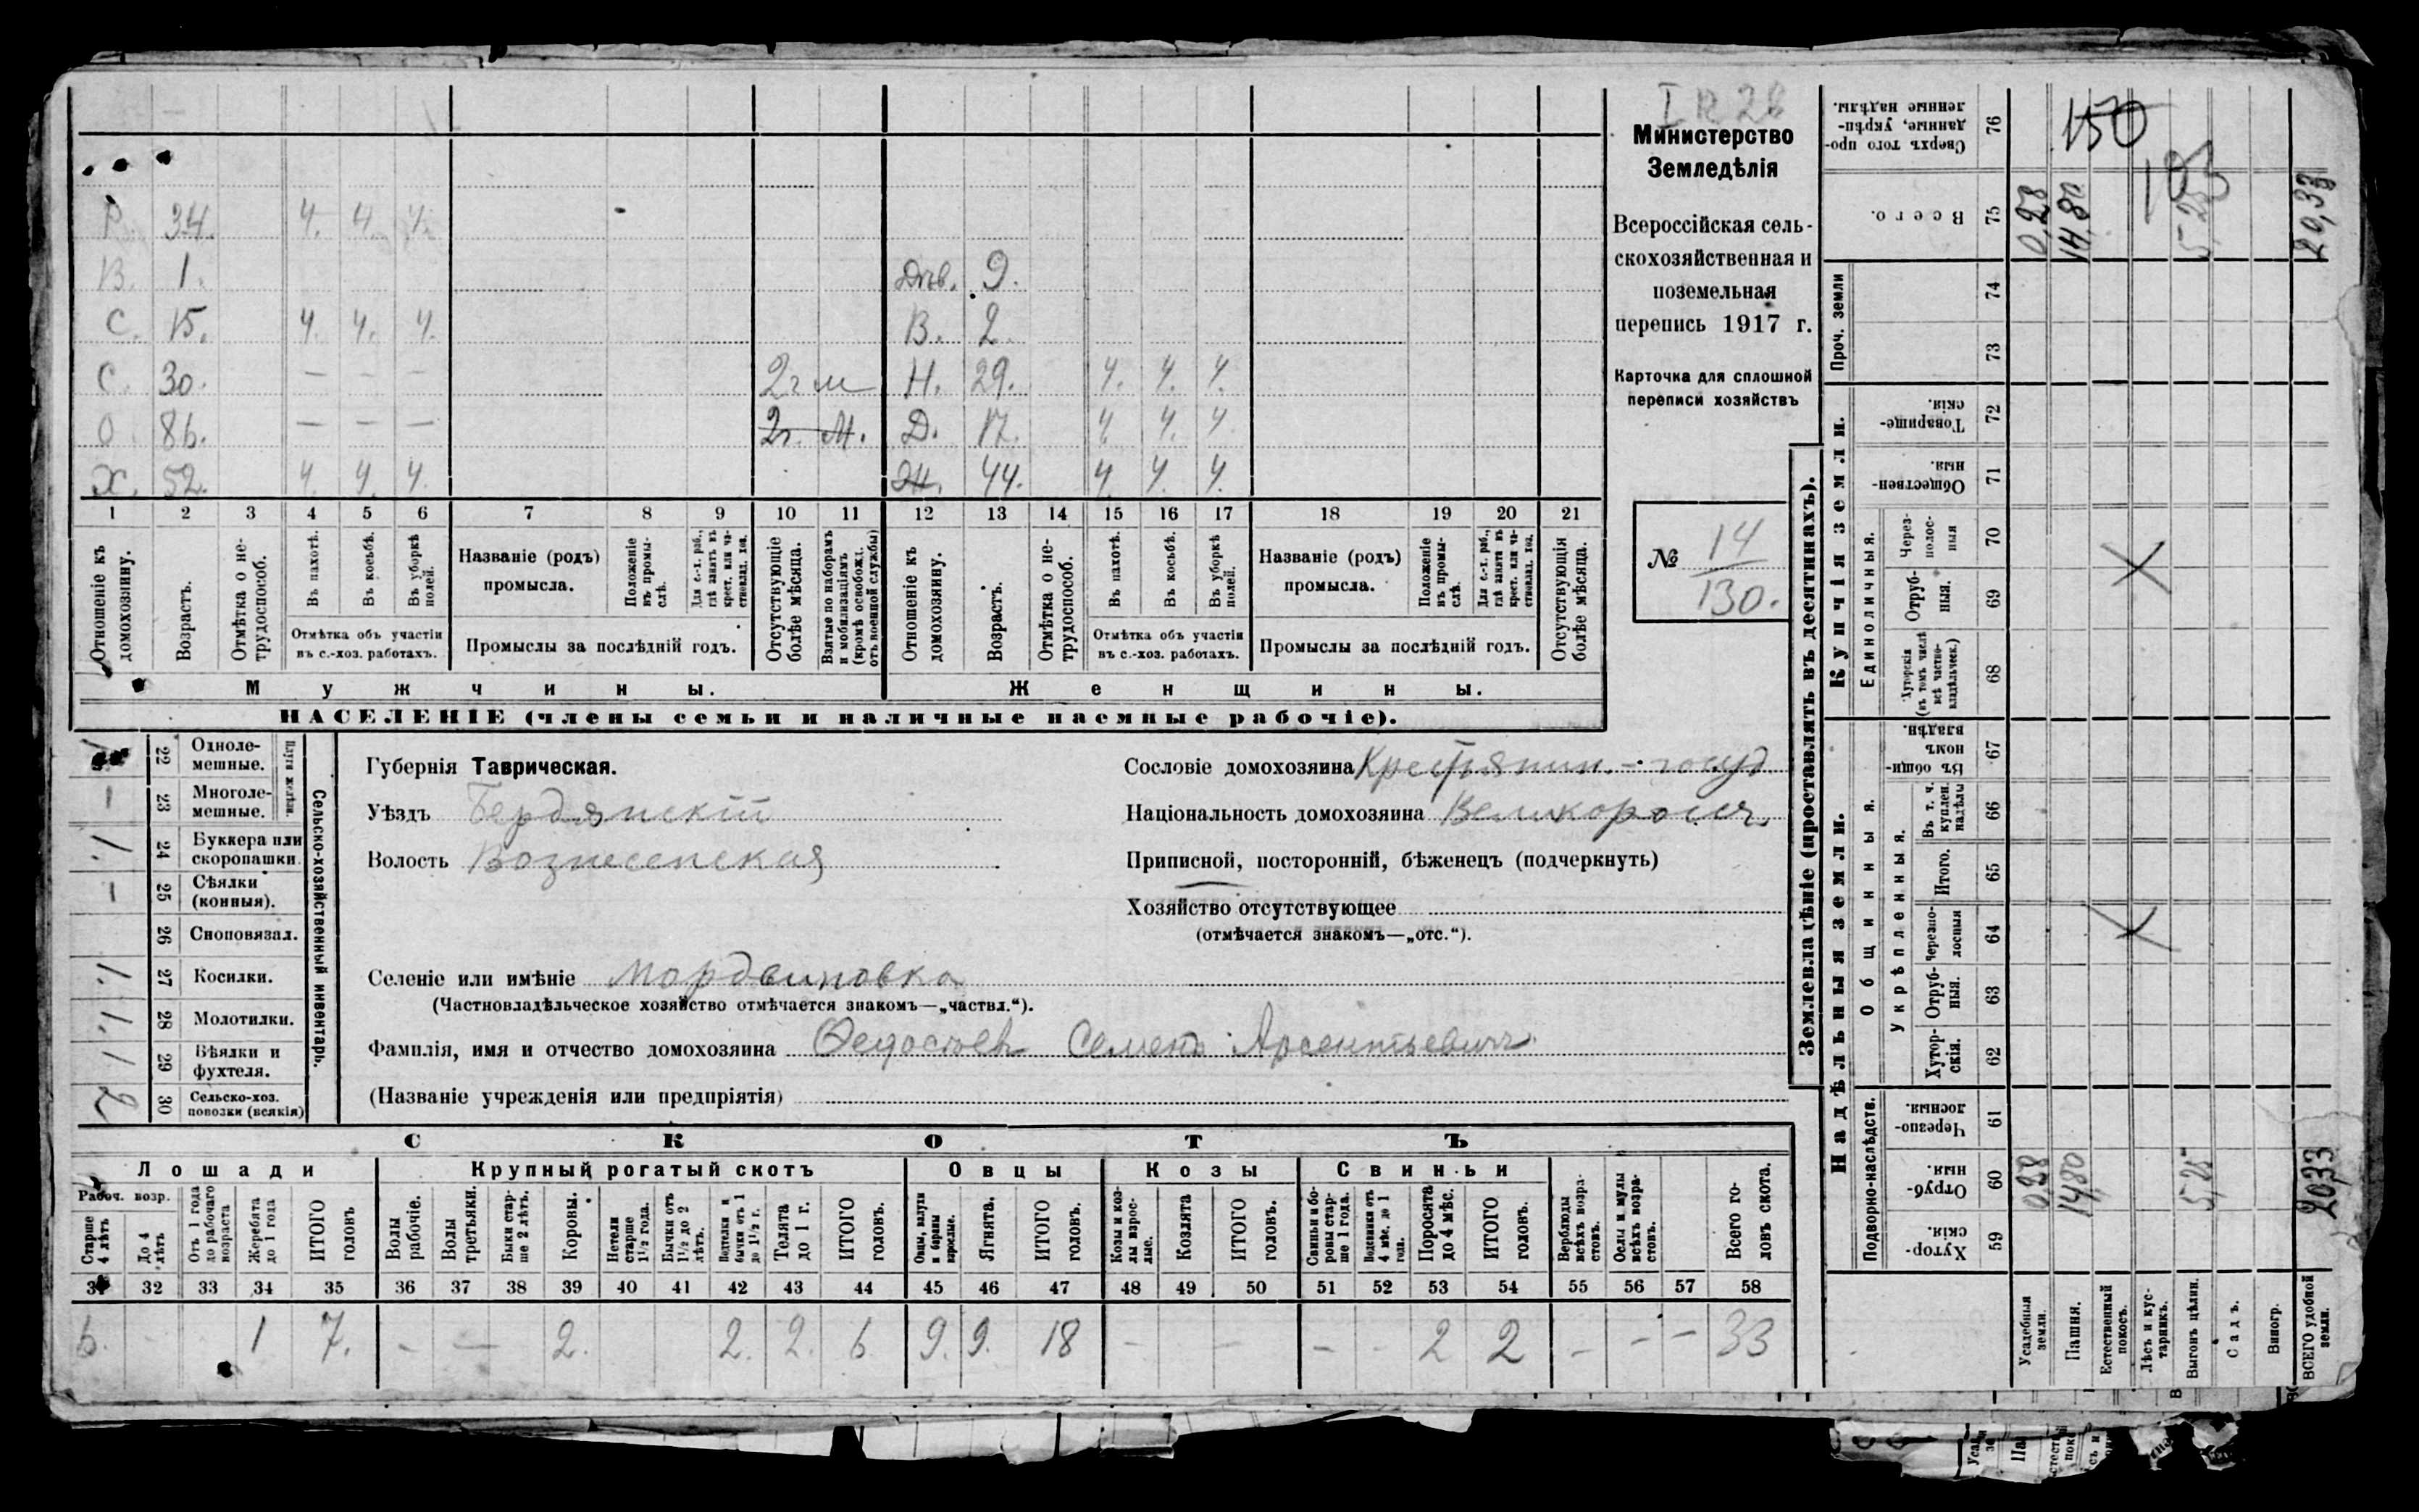 Министерство
Земледѣлія
Всероссійская сель-
скохозяйственная и
поземельная
перепись 1917 г.
Карточка для сплошной
переписи хозяйствъ
№ 14
130.
Р. 34. ч. ч. ч.
В. 1. Дѣв. 9.
С. 15. ч. ч. ч. В. 2.
С. 30. — — — 2г м Н. 29. ч. ч. ч.
О. 86. — — — 2г. М. Д. 17. ч. ч. ч.
Х. 52. ч. ч. ч. Ж. 44. ч. ч. ч.
1 2 3 4 5 6 7 8 9 10 11 12 13 14 15 16 17 18 19 20 21
Отношеніе къ домохозяину.
Возрастъ.
Отмѣтка о не-трудоспособ.
Въ пахотѣ.
Въ косьбѣ.
Въ уборкѣ полей.
Отмѣтка объ участіи
въ с.-хоз. работахъ.
Названіе (родъ)
промысла.
Положеніе въ промы-слѣ.
Для с.-х. раб., гдѣ занятъ въ крест. или ча-стновлад. хоз.
Промыслы за послѣдній годъ.
Отсутствующіе болѣе мѣсяца.
Взятые по наборамъ и мобилизаціямъ (кромѣ освобожд. отъ военной службы)
Отношеніе къ домохозяину.
Возрастъ.
Отмѣтка о не-трудоспособ.
Въ пахотѣ.
Въ косьбѣ.
Въ уборкѣ полей.
Отмѣтка объ участіи
въ с.-хоз. работахъ.
Названіе (родъ)
промысла.
Положеніе въ промы-слѣ.
Для с.-х. раб., гдѣ занята въ крест. или ча-стновлад. хоз.
Промыслы за послѣдній годъ.
Отсутствующія болѣе мѣсяца.
Мужчины. Женщины.
НАСЕЛЕНІЕ (члены семьи и наличные наемные рабочіе).
Сельско-хозяйственный инвентарь.
Плуги желѣзн.
22 Одноле-мешные.
— 23 Многоле-мешные.
1. 24 Буккера или скоропашки
— 25 Сѣялки (конныя).
26 Сноповязал.
1. 27 Косилки.
1. 28 Молотилки.
1 29 Вѣялки и фухтеля.
2 30 Сельско-хоз. повозки (всякія)
Губернія Таврическая.
Уѣздъ Бердянскій
Волость Вознесенская
Селеніе или имѣніе Мордвиновка
(Частновладѣльческое хозяйство отмѣчается знакомъ—„частвл.“).
Фамилія, имя и отчество домохозяина Семенъ Арсентьевичъ
(Названіе учрежденія или предпріятія)
Сословіе домохозяина Крестьянин.-госуд
Національность домохозяина Великороссъ
Приписной, посторонній, бѣженецъ (подчеркнуть)
Хозяйство отсутствующее
(отмѣчается знакомъ—„отс.“).
СКОТЪ
Лошади Крупный рогатый скотъ Овцы Козы Свиньи
Рабоч. возр.
Старше 4 лѣтъ
До 4 лѣтъ
Отъ 1 года до рабочаго возраста
Жеребята до 1 года
ИТОГО головъ
Волы рабочіе.
Волы третьяки.
Быки стар-ше 2 лѣтъ.
Коровы.
Нетели старше 1½ года.
Бычки отъ 1½ до 2 лѣтъ.
Подтелки и бычки отъ 1 до 1½ г.
Телята до 1 г.
ИТОГО головъ.
Овцы, валухи и бараны взрослые.
Ягнята.
ИТОГО головъ.
Козы и коз-лы взрос-лые.
Козлята
ИТОГО головъ.
Свиньи и бо-ровы стар-ше 1 года.
Подсвинки отъ 4 мѣс. до 1 года.
Поросята до 4 мѣс.
ИТОГО головъ.
Верблюды всѣхъ возра-стовъ.
Ослы и мулы всѣхъ возра-стовъ.
Всего го-ловъ скота.
31 32 33 34 35 36 37 38 39 40 41 42 43 44 45 46 47 48 49 50 51 52 53 54 55 56 57 58
6. - 1 7. - — 2. 2. 2. 6. 9. 9. 18 - - - - 2 2 - - - 33
Землевладѣніе (проставлять въ десятинахъ).
Надѣльныя земли. Купчія земли. Проч. земли
Подворно-наслѣдств.
Общинныя.
Укрѣпленныя.
Единоличныя.
Хутор-скія 59
Отруб-ныя. 60
Черезпо-лосныя. 61
Хутор-скія. 62
Отруб-ныя. 63
Черезпо-лосныя 64
Итого. 65
Въ т. ч. куплен. надѣлы 66
Въ общи-номъ владѣн. 67
Хуторскія (въ томъ числѣ всѣ частно-владѣльческ.) 68
Отруб-ныя. 69
Через-полос-ныя 70
Обществен-ныя. 71
Товарище-скія. 72
73
74
Всего. 75
Сверхъ того про-данные, укрѣп-ленные надѣлы. 76
Усадебныя земли. 0,28 0,28
Пашня. 14,80 14,80 150
Естественный покосъ.
Лѣсъ и кус-тарникъ.
Выгонъ цѣлин. 5,25 5,25
Садъ.
Виногр.
ВСЕГО удобной земли. 20,33 20,33